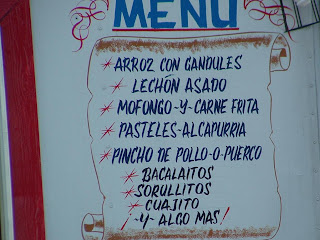 MENU
* ARROZ CON GANDULES
* LECHÓN ASADO
* MOFONGO-Y-CARNE FRITA
* PASTELES-ALCAPURRIA
* PINCHO DE POLLO-O-PUERCO
* BACALAITOS
* SORULLITOS
* CUAJITO
¡-Y ALGO MAS!